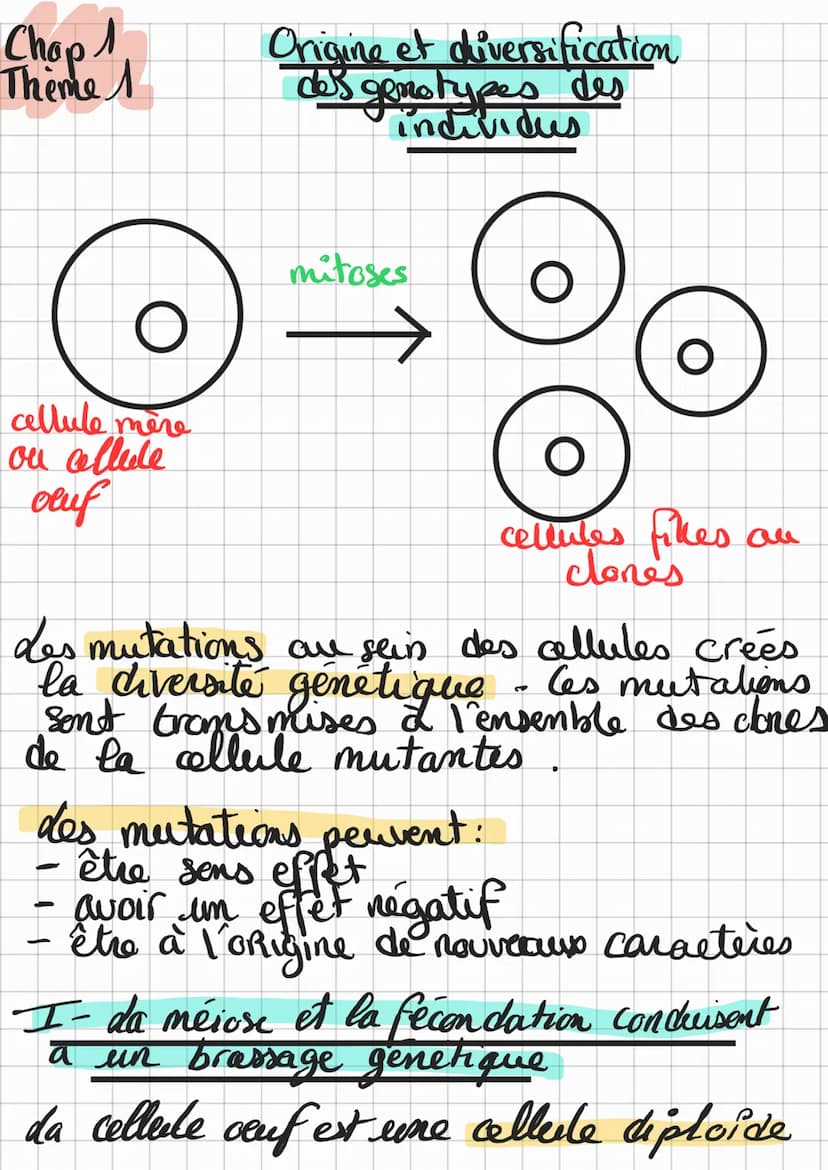 Chap 1
Thème 1
Origine et diversification
des génotypes des
individus
mitoses
cellule mère
ou cellule
œuf
cellules filles ou
clones
Les mutations au sein des cellules créés
la diversité génétique. Ces mutations
sont transmises à l'ensemble des clones
de la cellule mutantes.
Les mutations peuvent :
- être sens effet
- avoir un effet négatif
- être à l'origine de nouveaux caractères
I- La méiose et la fécondation conduisent
à un brassage génétique
La cellule œuf est une cellule diploïde